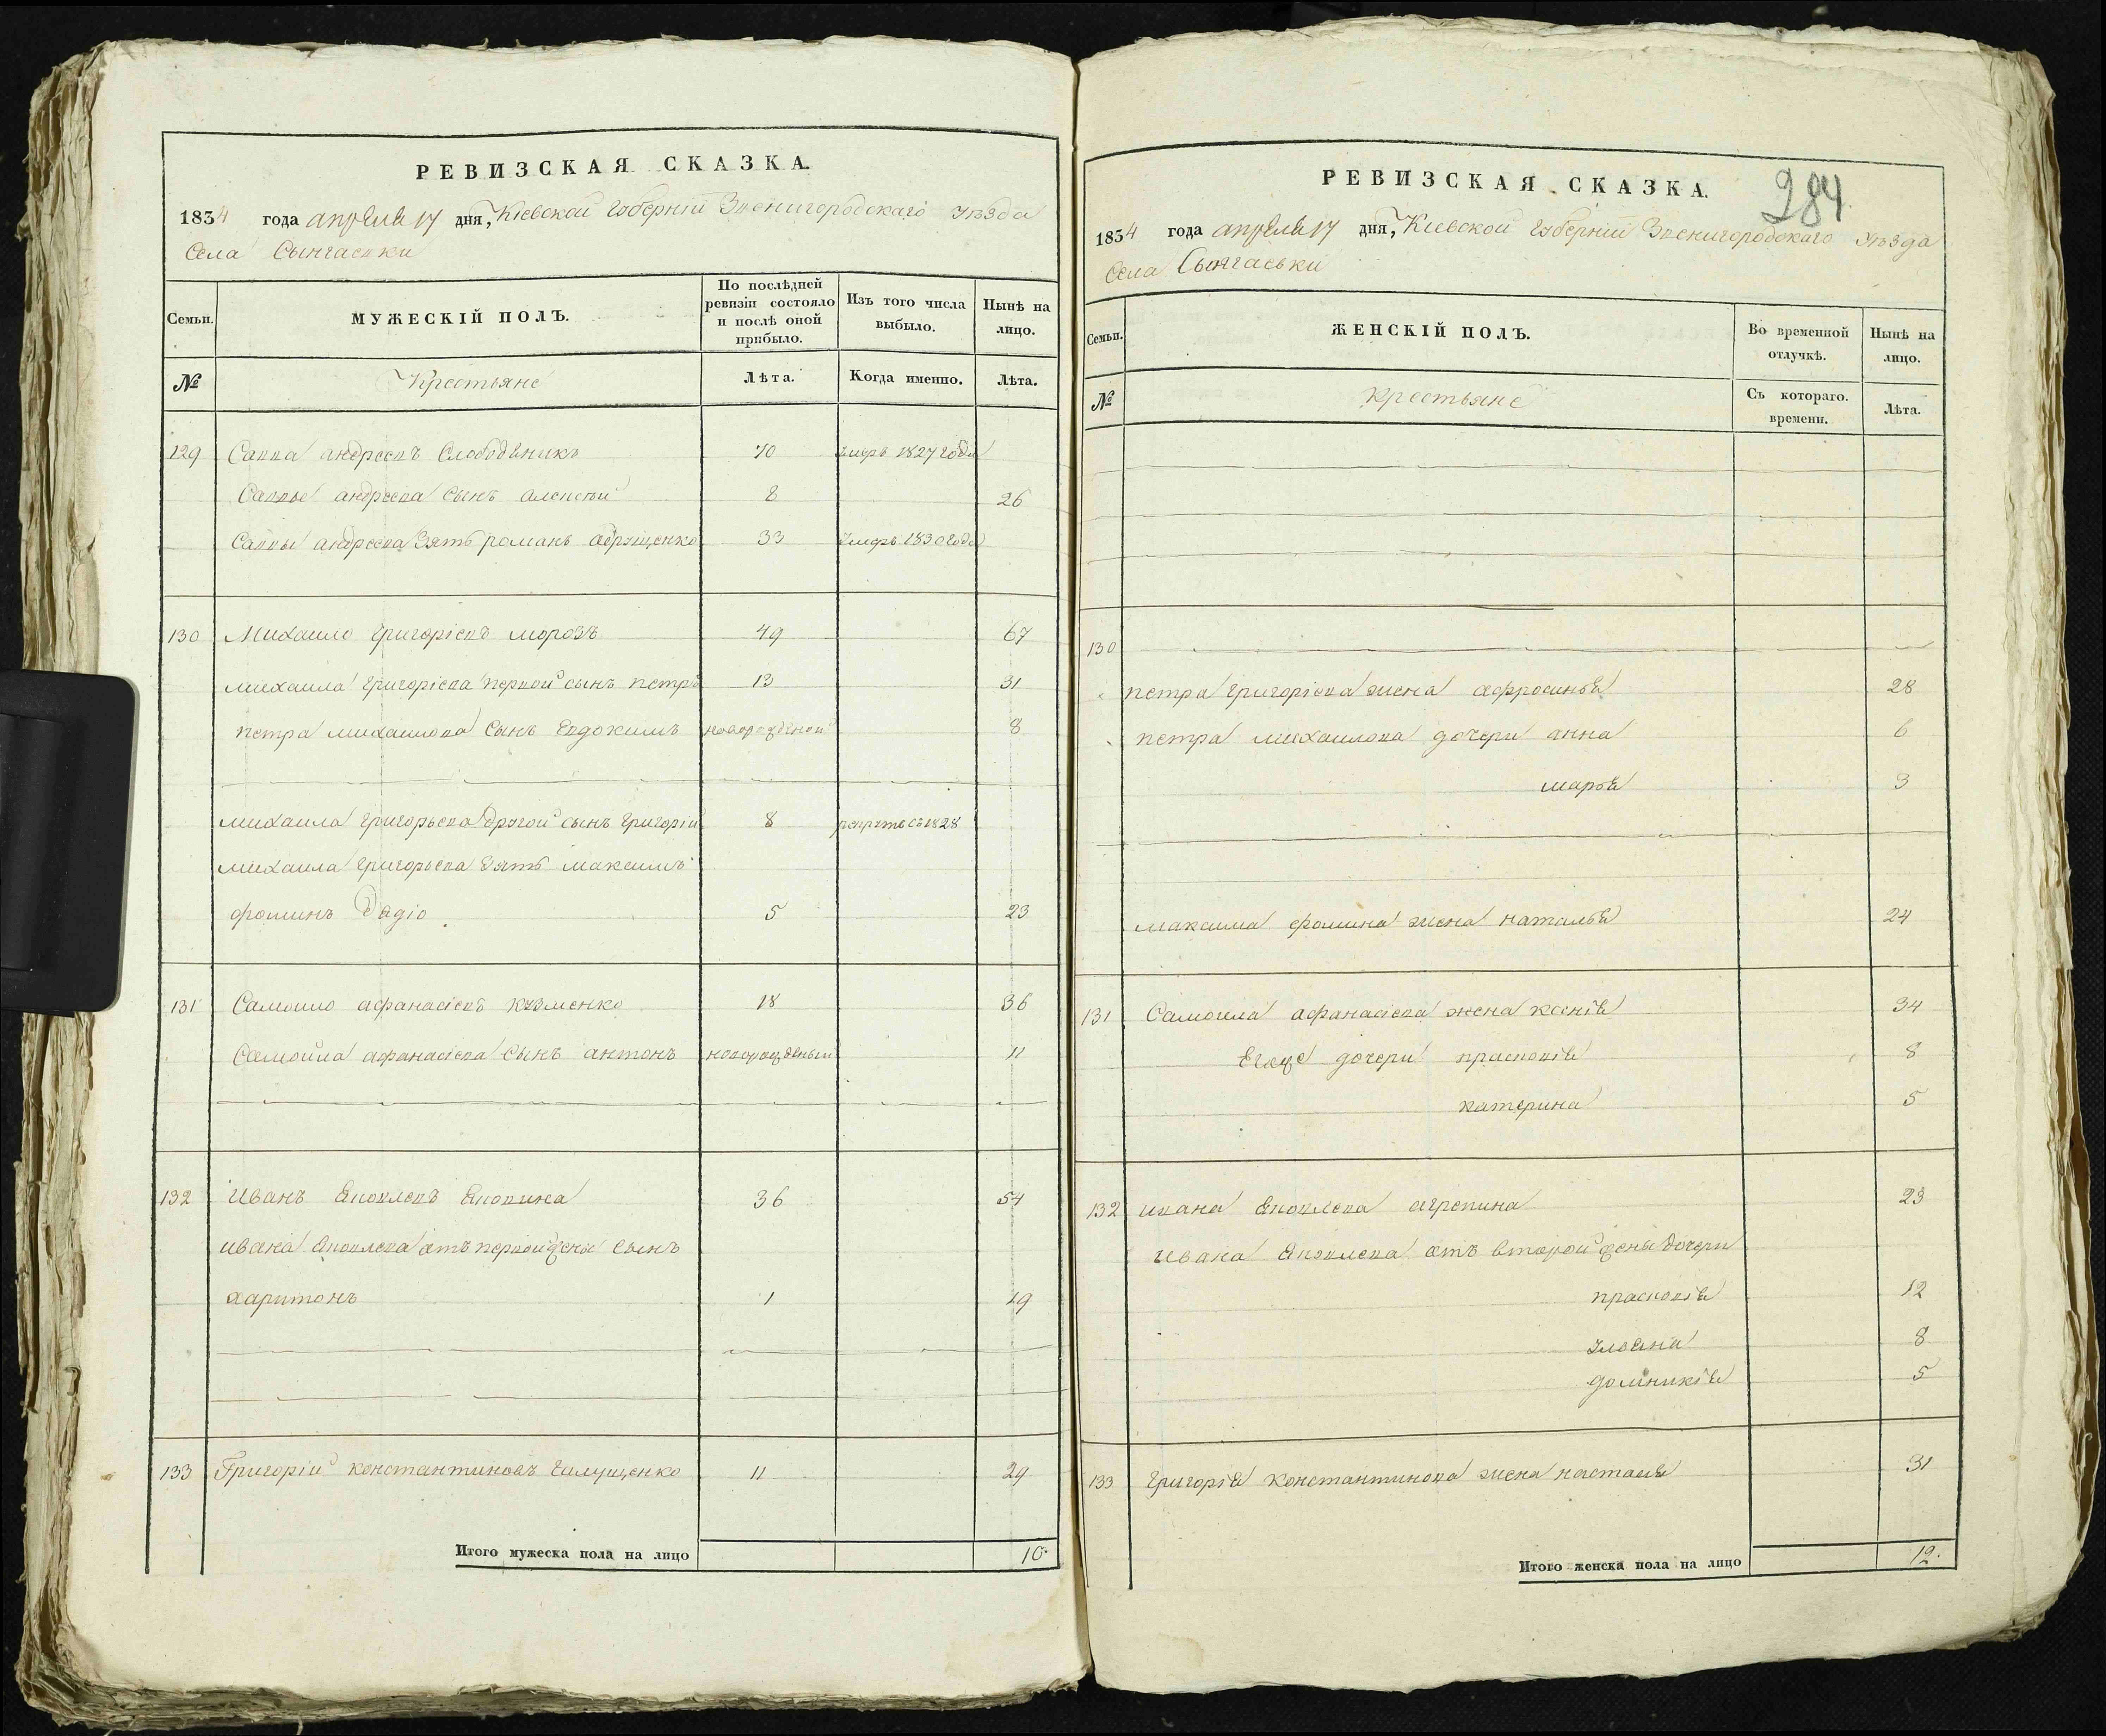 РЕВИЗСКАЯ СКАЗКА.
1834 года апреля 17 дня, Кіевской губерніи Звенигородскаго уѣзда
Села Сынгаевки
Семьи.
МУЖЕСКІЙ ПОЛЪ.
По послѣдней ревизіи состояло и послѣ оной прибыло.
Изъ того числа выбыло.
Нынѣ на лицо.
№ Крестьяне Лѣта. Когда именно. Лѣта.
129 Савва андреевъ Слободяникъ 70 умеръ 1827 года
Саввы андреева сынъ алексѣй 8 26
Саввы андреева зять романъ 33 умеръ 1830 года
130 Михаило григоріевъ морозъ 49 67
михаила григоріева первой сынъ петръ 13 31
петра михаилова сынъ Евдокимъ новорожденой 8
михаила григорьева другой сынъ григорій 8 рекрутъ съ 1828
михаила григорьева зять максимъ
фоминъ 5 23
131 Самоило афанасіевъ кузменко 18 36
Самойла афанасіева сынъ антонъ новорожденый 11
132 Иванъ Яковлевъ 36 54
ивана Яковлева отъ первой жены сынъ
харитонъ 1 19
133 Григорій константиновъ 11 29
Итого мужеска пола на лицо 10.
РЕВИЗСКАЯ СКАЗКА.
284
1834 года апреля 17 дня, Кіевской губерніи Звенигородскаго уѣзда
Села Сынгаевки
Семьи.
ЖЕНСКІЙ ПОЛЪ.
Во временной отлучкѣ.
Нынѣ на лицо.
№ крестьяне Съ котораго. времени. Лѣта.
130
петра григоріева жена афросинья 28
петра михаилова дочери анна 6
марья 3
максима фомина жена наталья 24
131 Самоила афанасіева жена ксенія 34
Егоже дочери прасковія 8
катерина 5
132 ивана Яковлева агрепина 23
ивана Яковлева отъ второй жены дочери
прасковія 12
ульяна 8
домникія 5
133 григорія константинова жена настасія 31
Итого женска пола на лицо 12.